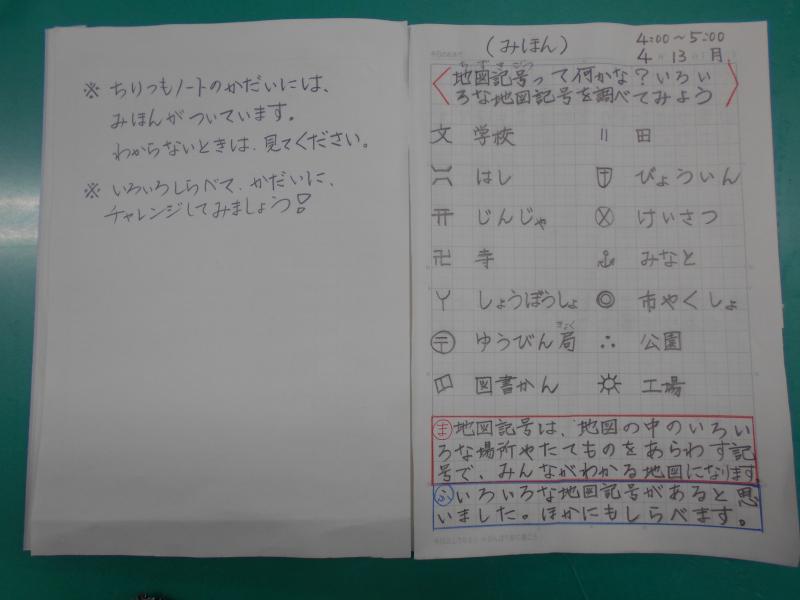 ※ ちりつもノートのかだいには、
みほんがついています。
わからないときは、見てください。
※ いろいろしらべて、かだいに、
チャレンジしてみましょう!
(みほん)
4:00〜5:00
4月13日 月
地図記号って何かな?いろい
ろな地図記号を調べてみよう
文 学校 〃 田
はし びょういん
じんじゃ けいさつ
卍 寺 みなと
しょうぼうしょ ◎ 市やくしょ
〶 ゆうびん局 ∴ 公園
きょく
図書かん 工場
ま 地図記号は、地図の中のいろい
ろな場所やたてものをあらわす記
号で、みんながわかる地図になります
ふ いろいろな地図記号があると思
いました。ほかにもしらべます。